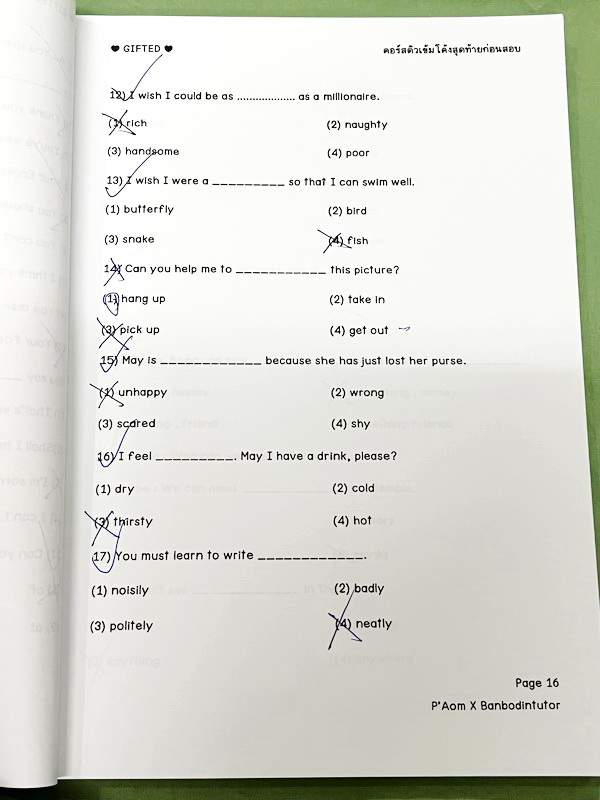 ♥ GIFTED ♥ คอร์สติวเข้มโค้งสุดท้ายก่อนสอบ
12) I wish I could be as .................. as a millionaire.
(1) rich (2) naughty
(3) handsome (4) poor
13) I wish I were a _________ so that I can swim well.
(1) butterfly (2) bird
(3) snake (4) fish
14) Can you help me to ___________ this picture?
(1) hang up (2) take in
(3) pick up (4) get out
15) May is ____________ because she has just lost her purse.
(1) unhappy (2) wrong
(3) scared (4) shy
16) I feel _________. May I have a drink, please?
(1) dry (2) cold
(3) thirsty (4) hot
17) You must learn to write ____________.
(1) noisily (2) badly
(3) politely (4) neatly
Page 16
P'Aom X Banbodintutor